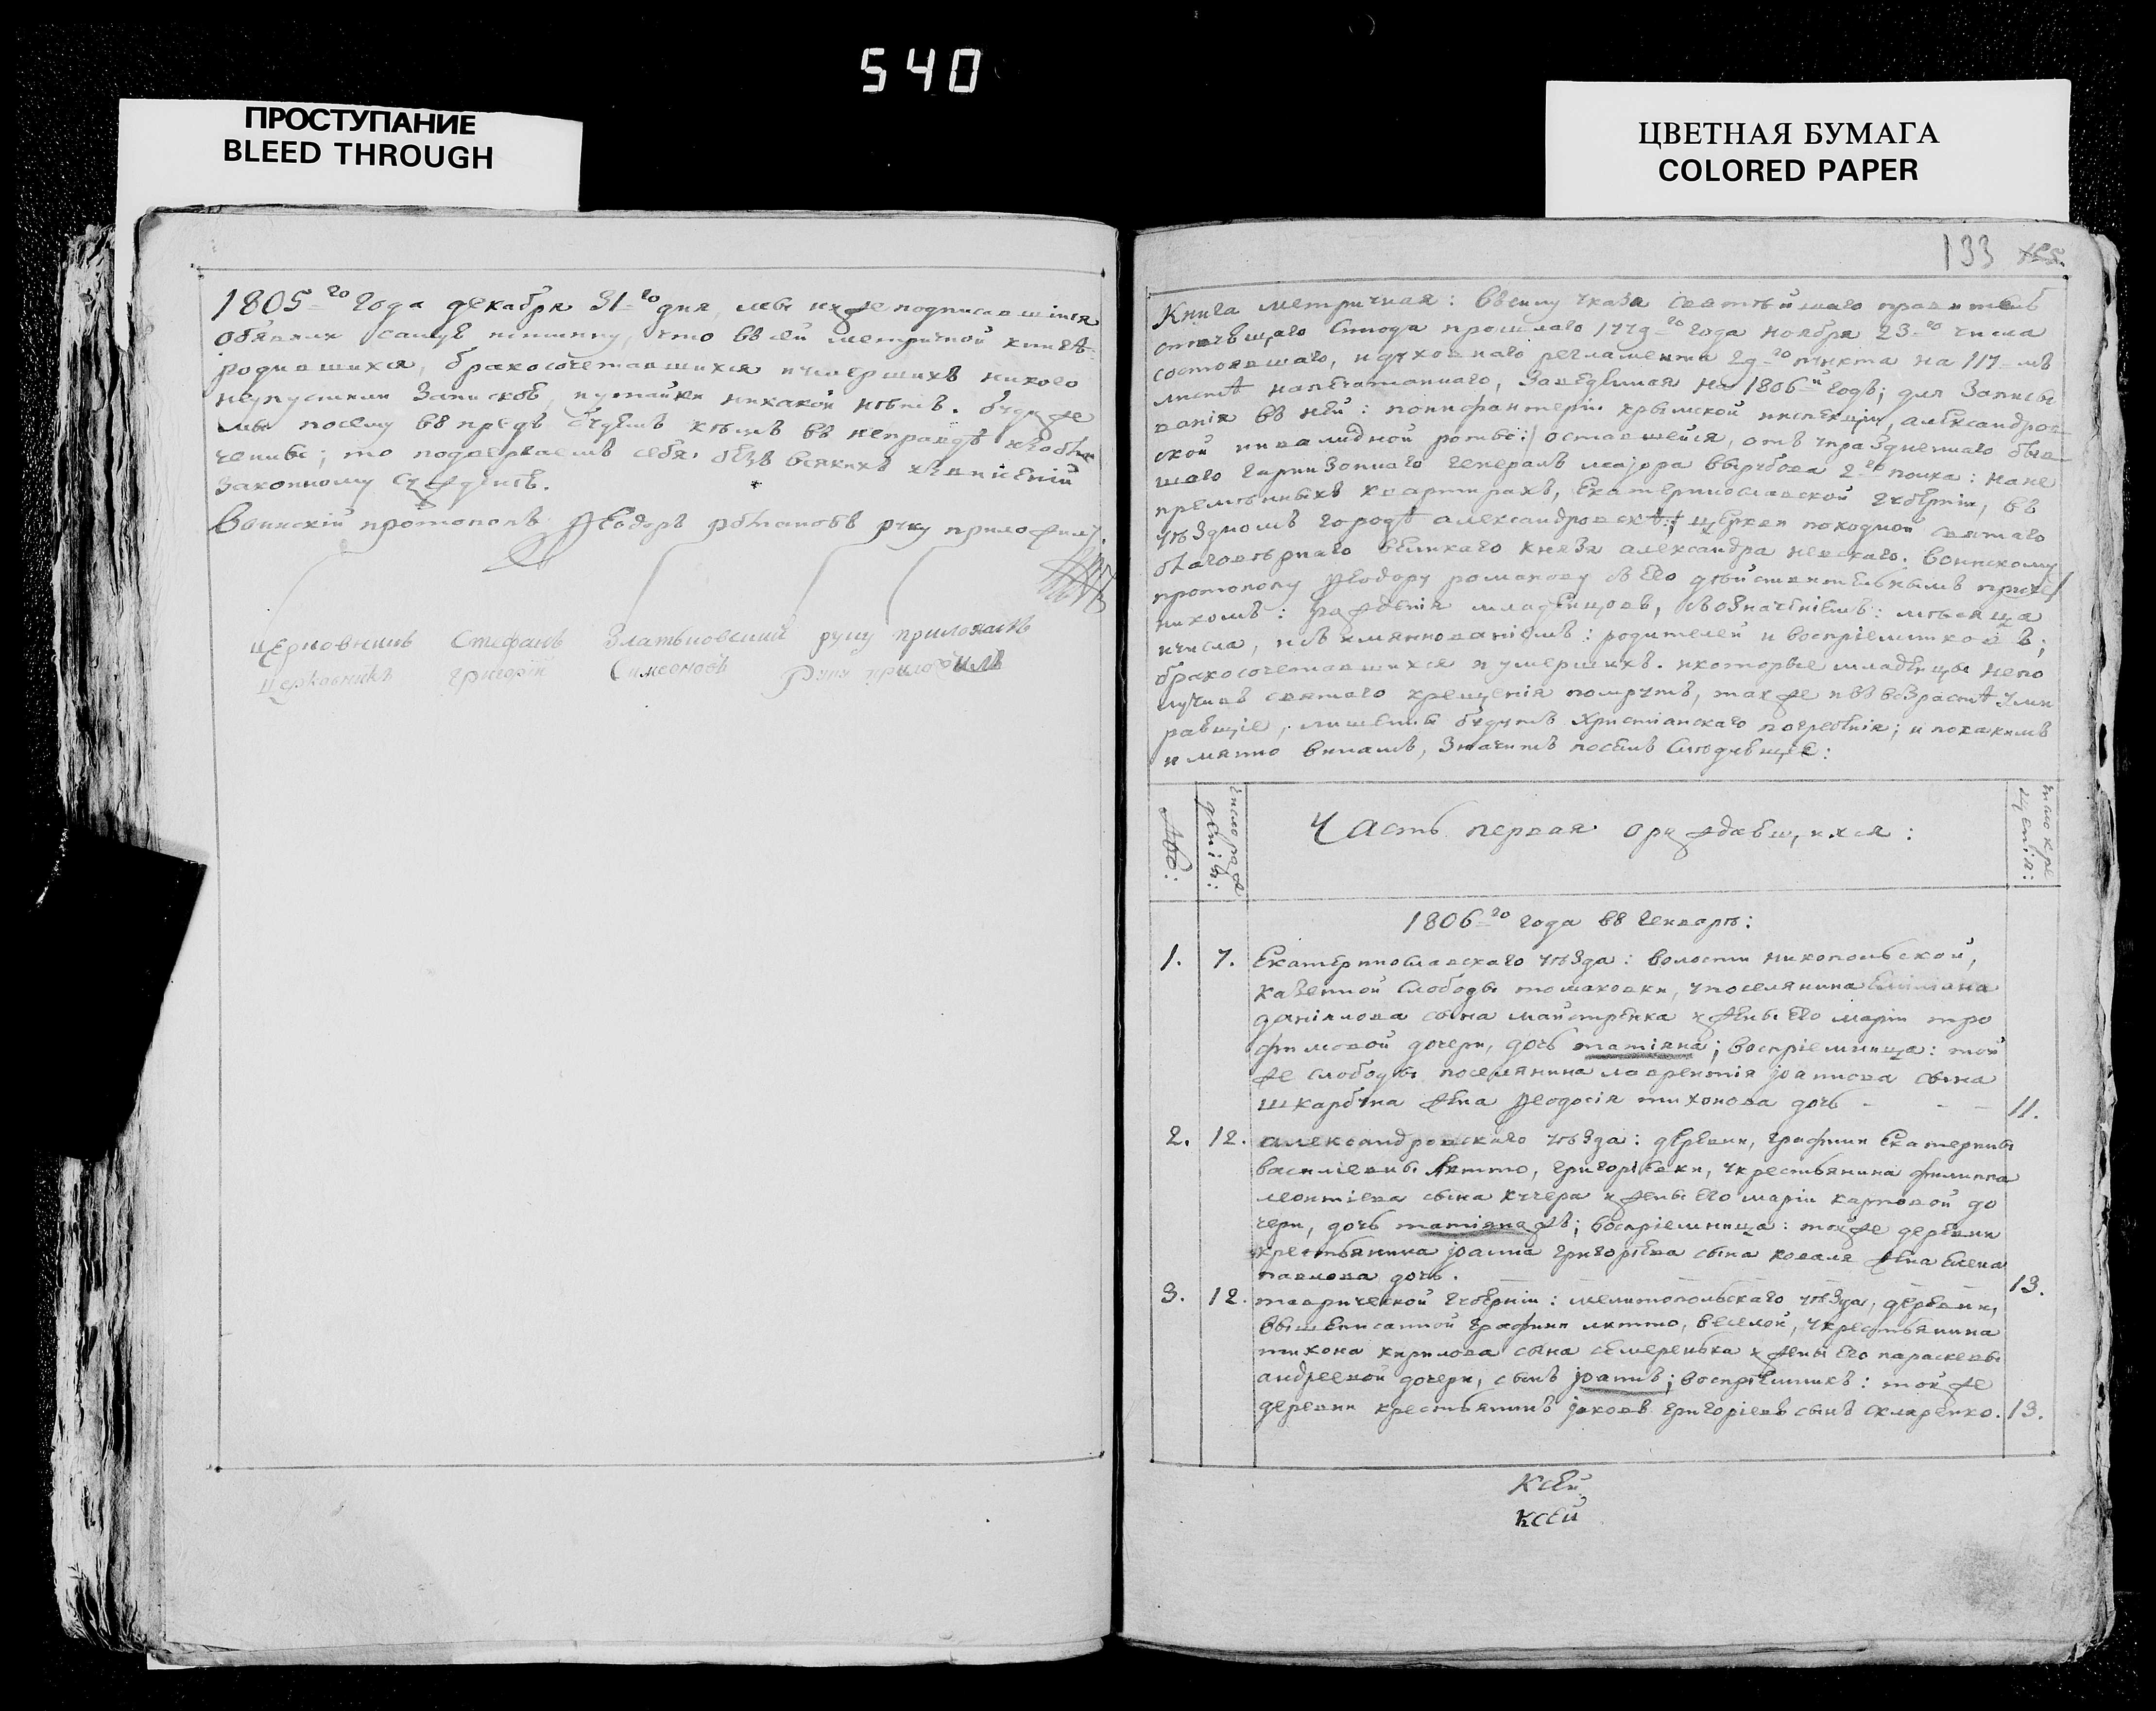 540
ПРОСТУПАНИЕ
BLEED THROUGH
ЦВЕТНАЯ БУМАГА
COLORED PAPER
1805-го года декабря 31-го дня, мы нижеподписавшіися
объявили самую истинну, что въ сей метричной книгѣ
родившихся, бракосочетавшихся и умершихъ никого
непустили записков, и утайки никакой нѣтъ. будеже
мы посему въ предъ будемъ кѣмъ въ неправдѣ изобли
чены; то подвергаемъ себя безъ всякихъ извиненій
законному сужденію.
Воинскій протопопъ Ѳеодоръ романовъ руку приложилъ.
Церковникъ Стефанъ руку приложилъ
Церковникъ Григорій Симеоновъ Руку приложилъ
133
Книга метричная: въ силу указа святѣйшаго правитель
ствующаго Синода прошлаго 1779-го года ноября 23-го числа
состоявшаго, и духовнаго регламента 29-го пункта на 117-мъ
листѣ напечатаннаго, заведенная на 1806-й годъ; для записы
ванія въ ней: по инфантеріи крымской инспекціи, александров
ской инвалидной роты:/ оставшейся, отъ упраздненаго быв
шаго гарнизоннаго генералъ маjора вырубова 2-го полка: на не
премѣнныхъ квартирахъ, Екатеринославской губерніи, въ
уѣздномъ городѣ александровскѣ:/ церкви походной святаго
благовѣрнаго великаго князя александра невскаго. воинскому
протопопу Ѳеодору романову съ его дѣйствительнымъ приче
никомъ: рожденія младенцовъ, съ означеніемъ: мѣсяца
и числа, и съ имянованіемъ: родителей и воспріемниковъ;
бракосочетавшихся и умершихъ. и которые младенцы непо
лучивъ святаго крещенія помрутъ, также и въ возрастѣ уми
равшіе, лишены будутъ христіанскаго погребенія; и по какимъ
имянно винамъ, значитъ посемъ слѣдующее:
№:
число рож
деній:
Часть первая о рождавшихся:
число кре
щенія:
1806-го года въ генварѣ:
1. 7. Екатеринославскаго уѣзда: волости никопольской,
казенной слободы томаковки, у поселянина
даніилова сына майстренка и жены его маріи тро
фимовой дочери, дочь татіяна; воспріемница: той
же слободы поселянина лаврентія jоаннова сына
шкарбуна жена Ѳеодосія тихонова дочь - - - 11.
2. 12. александровскаго уѣзда: деревни, графини Екатерины
василіевны литто, григоріевки, у крестьянина филиппа
леонтіева сына кучера и жены его маріи карповой до
чери, дочь татіяна жъ; воспріемница: тойже деревни
крестьянина jоанна григоріева сына коваля жена Елена
павлова дочь. 13.
3. 12. таврической губерніи: мелитопольскаго уѣзда, деревни,
вышеписанной графини литто, веселой, у крестьянина
тихона кирилова сына семеренька и жены его параскевы
андреевой дочери, сынъ jоаннъ; воспріемникъ: той же
деревни крестьянинъ jаковъ григоріевъ сынъ скляренко. 13.
Ксей
Ксей